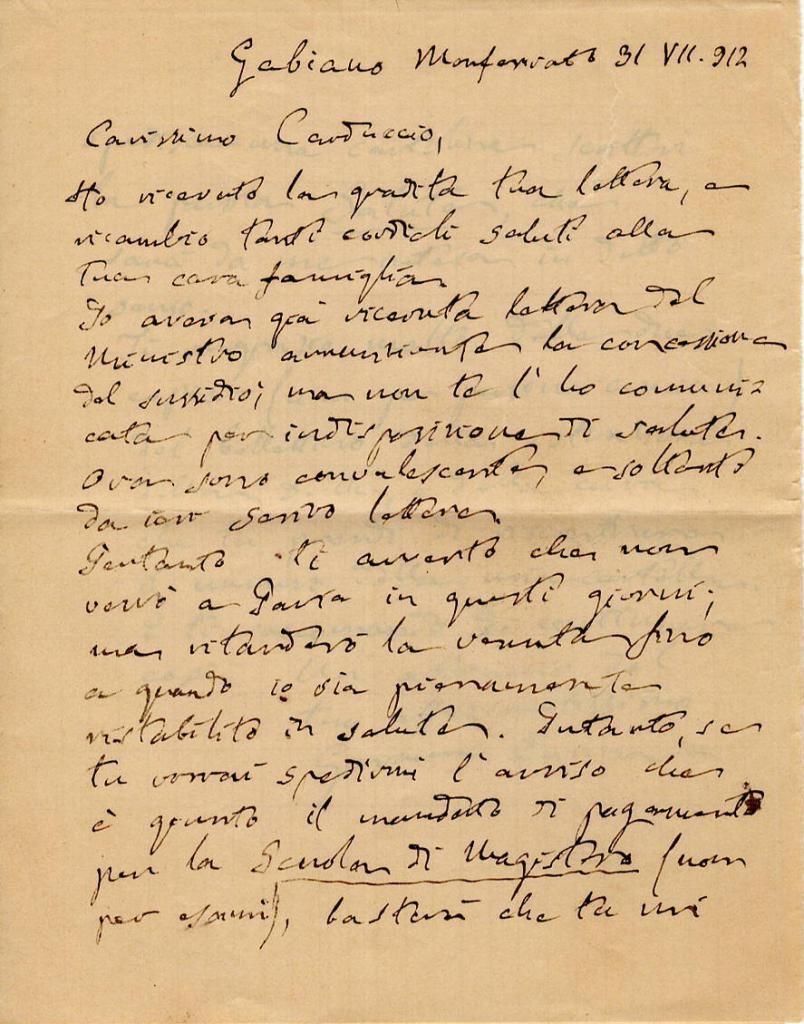 Gabiano Monferrato 31 VII. 912
Carissimo Carduccio,
Ho ricevuto la gradita tua lettera, e
ricambio tanti cordiali saluti alla
tua cara famiglia.
Io aveva già ricevuta lettera del
Ministro annunziante la concessione
del sussidio; ma non te l'ho comuni=
cata per indisposizione di salute.
Ora sono convalescente, e soltanto
da ieri scrivo lettere.
Pertanto ti avverto che non
verrò a Pavia in questi giorni;
ma ritarderò la venuta fino
a quando io sia pienamente
ristabilito in salute. Intanto, se
tu vorrai spedirmi l'avviso che
è giunto il mandato di pagamento
per la Scuola di Magistero (non
per esami), basterà che tu mi